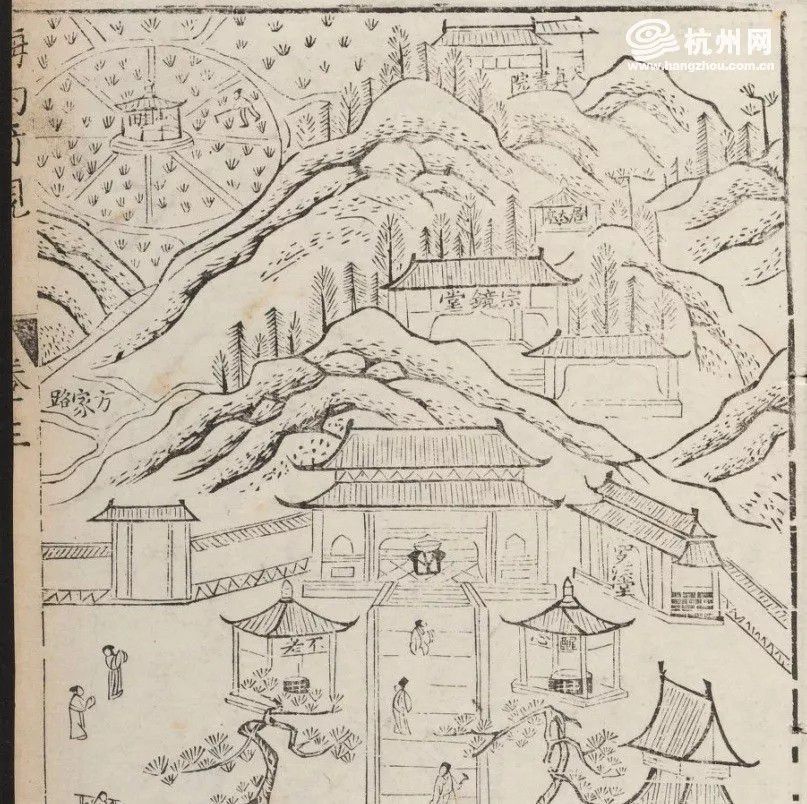 杭州网
www.hangzhou.com.cn
海内奇观
卷三
天真書院
宗鏡堂
方家路
羅漢堂
不老